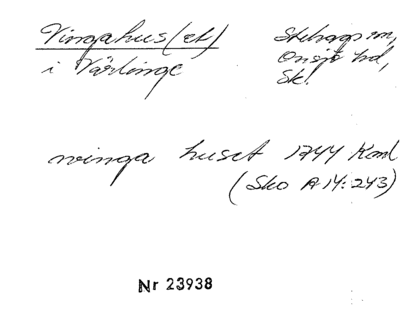 Vingahus(et)
i Värlinge
Stehags sn,
Onsjö hd,
Sk.
winga huset 1744 Koncl
(Sko A 14:243)
Nr 23938